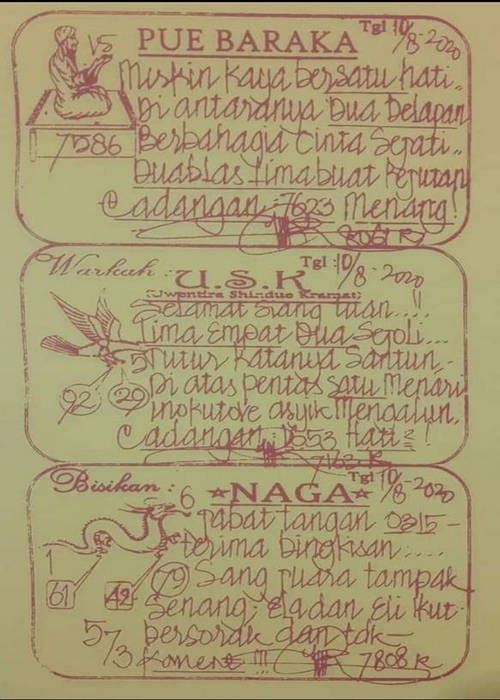 PUE BARAKA
Tgl 10/8-2020
15
Miskin Kaya bersatu hati..
Di antaranya Dua Delapan
7586
Berbahagia Cinta Sejati..
Duablas lima buat Kejutan
Cadangan : 7623 Menang!
8061 R
Warkah :
U.S.K
Tgl : 10/8-2020
Selamat Siang Tuan...!!
Lima Empat Dua Sejoli...
5
Tutur Katanya Santun,-
92
29
Di atas pentas satu Menari
asyik Mengalun.
Cadangan : Hati²!
7163 R
Bisikan :
☆NAGA☆
Tgl 10/8-2020
6
Jabat tangan 0315-
terima bingkisan....
1
61
42
79
Sang Juara tampak
Senang; Eladan Eli Ikut
5/73
bersorak dan tdk-
Koment !!!
7808 R